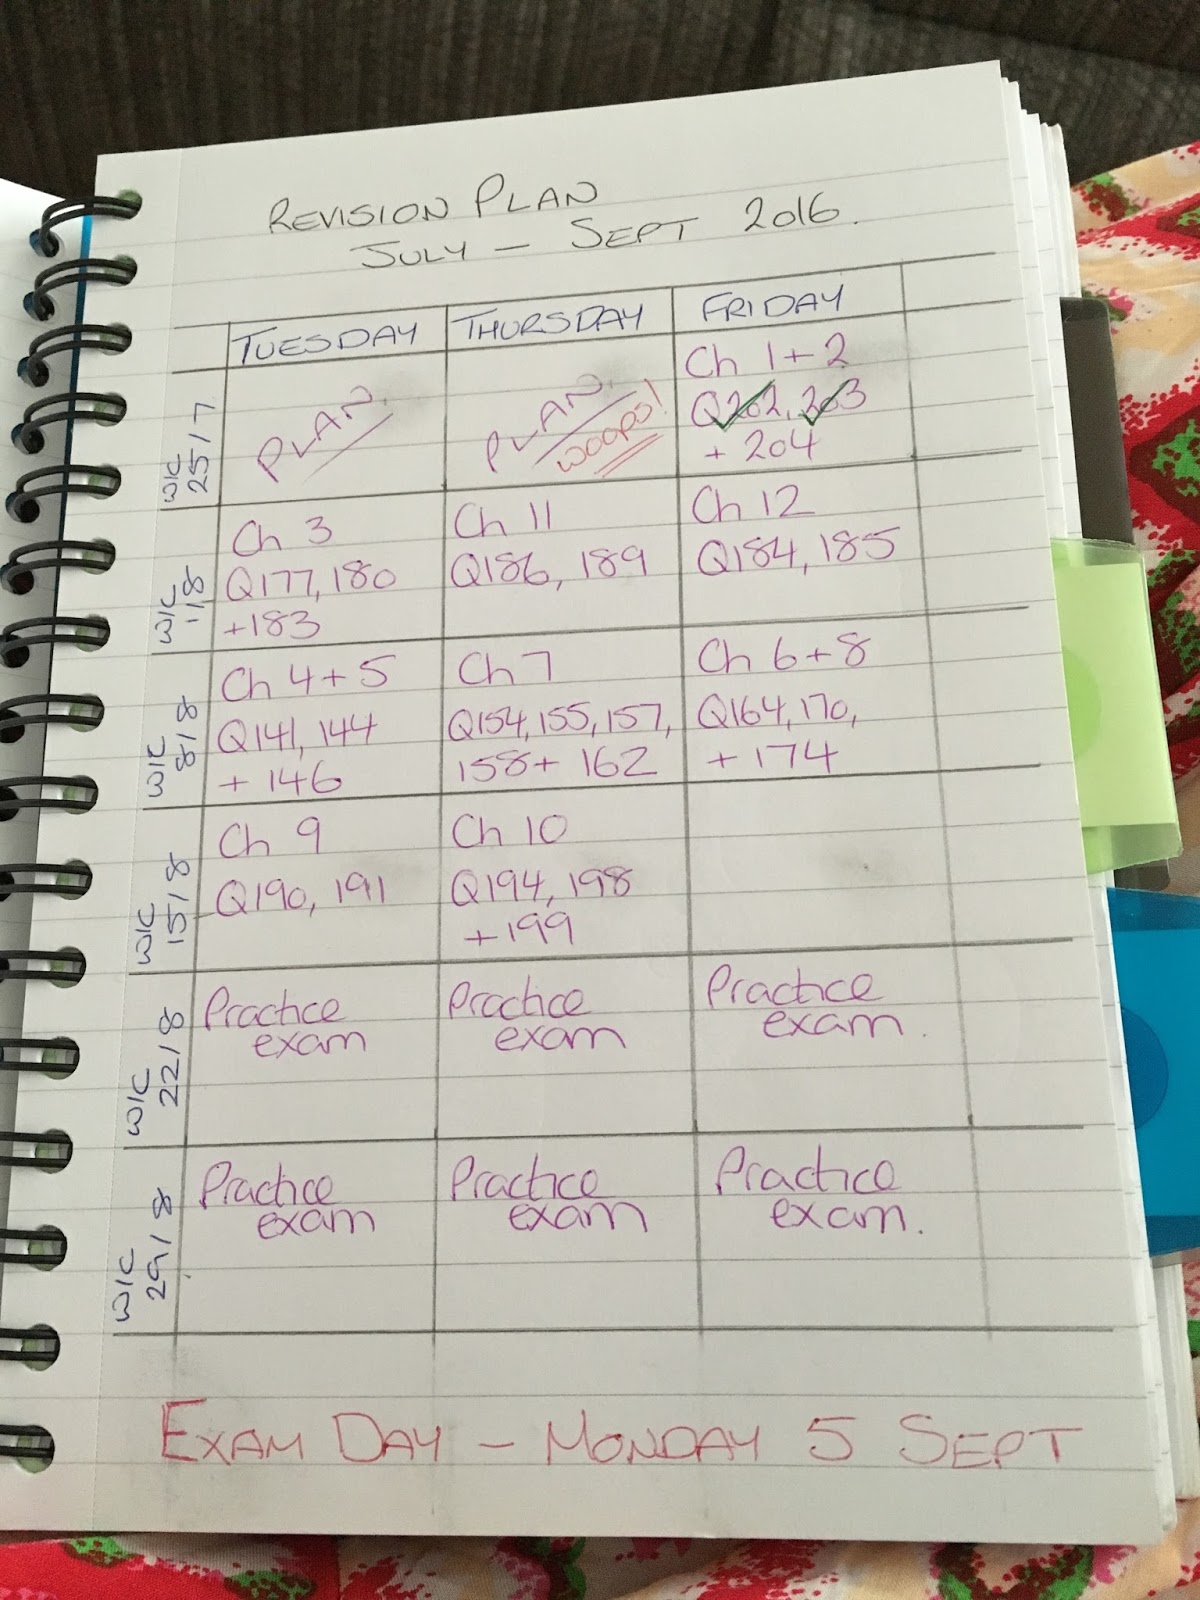 REVISION PLAN
JULY – SEPT 2016.
TUESDAY THURSDAY FRIDAY
W/C
25/7
PLAN.
PLAN.
woops!
Ch 1+2
Q202, 203
+ 204
W/C
1/8
Ch 3
Q177, 180
+183
Ch 11
Q186, 189
Ch 12
Q184, 185
W/C
8/8
Ch 4+5
Q141, 144
+ 146
Ch 7
Q154, 155, 157,
158+ 162
Ch 6+8
Q164, 170,
+ 174
W/C
15/8
Ch 9
Q190, 191
Ch 10
Q194, 198
+199
W/C
22/8
Practice
exam
Practice
exam
Practice
exam.
W/C
29/8
Practice
exam
Practice
exam
Practice
exam.
EXAM DAY – MONDAY 5 SEPT